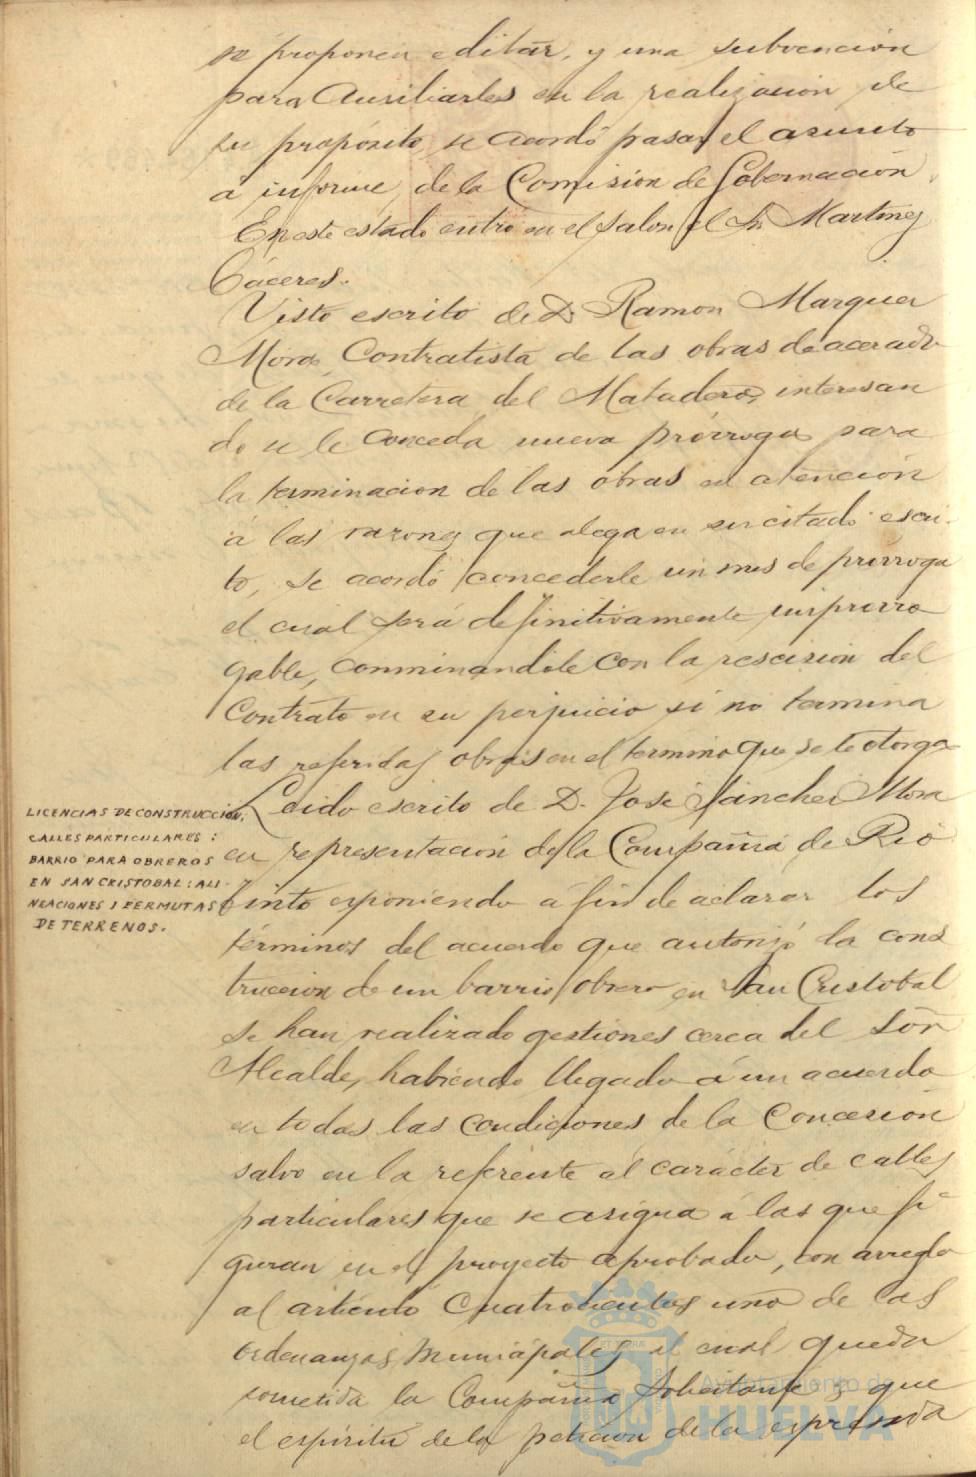 se proponen editar, y una subvención
para Auxiliarles en la realización de
su propósito, se acordó pasar el asunto
á informe, de la Comision de Gobernación.
En este estado entró en el salon el Sr. Martinez
Cáceres.
Visto escrito de D. Ramon Marquez
Mora, Contratista de las obras de acerado
de la Carretera del Matadero, interesan
do se le conceda nueva prórroga para
la terminacion de las obras en atención
á las razones que alega en su citado escri-
to, se acordó concederle un mes de prorroga
el cual será definitivamente improrro
gable, conminandole con la rescision del
Contrato en su perjuicio si no termina
las referidas obras en el termino que se le otorga
LICENCIAS DE CONSTRUCCION,
CALLES PARTICULARES:
BARRIO PARA OBREROS
EN SAN CRISTOBAL: ALI-
NEACIONES I PERMUTAS
DE TERRENOS.
Leido escrito de D. José Sánchez Mora
en representación de la Compañia de Rio
Tinto esponiendo á fin de aclarar los
términos del acuerdo que autorizó la cons
truccion de un barrio obrero en San Cristobal
se han realizado gestiones cerca del Señor
Alcalde, habiendo llegado á un acuerdo
en todas las condiciones de la Concesion
salvo en la referente al carácter de calles
particulares que se asigna á las que fi-
guran en el proyecto aprobado, con arreglo
al artículo cuatrocientos uno de las
Ordenanzas Municipales al cual queda
sometida la Compañia Solicitante y que
el espíritu de la petición de la expresada
Ayuntamiento de
HUELVA